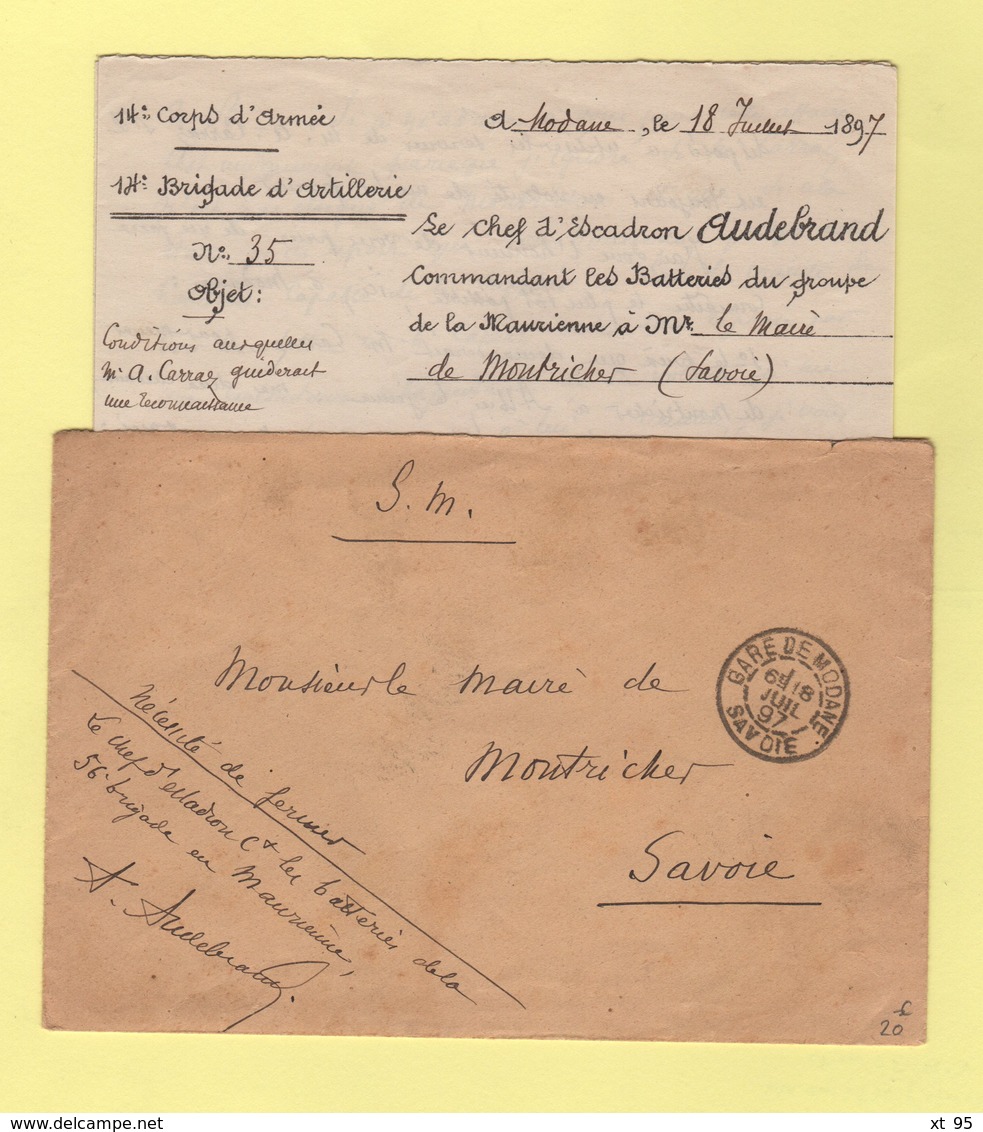 14e Corps d'Armée
A Modane, le 18 Juillet 1897
14e Brigade d'Artillerie
No. 35
Objet:
Conditions auxquelles
Mr A. Carraz guiderait
une reconnaissance
Le Chef d'Escadron Audebrand
Commandant les Batteries du groupe
de la Maurienne à Mr. le Maire
de Montricher (Savoie)
S. M.
Monsieur le Maire de
Montricher
Savoie
GARE DE MODANE
6E 18
JUIL
97
SAVOIE
Nécessité de fermer
Le chef d'escadron Ct les batteries de la
56e brigade en Maurienne,
A. Audebrand
20
www.delcampe.net
xt 95